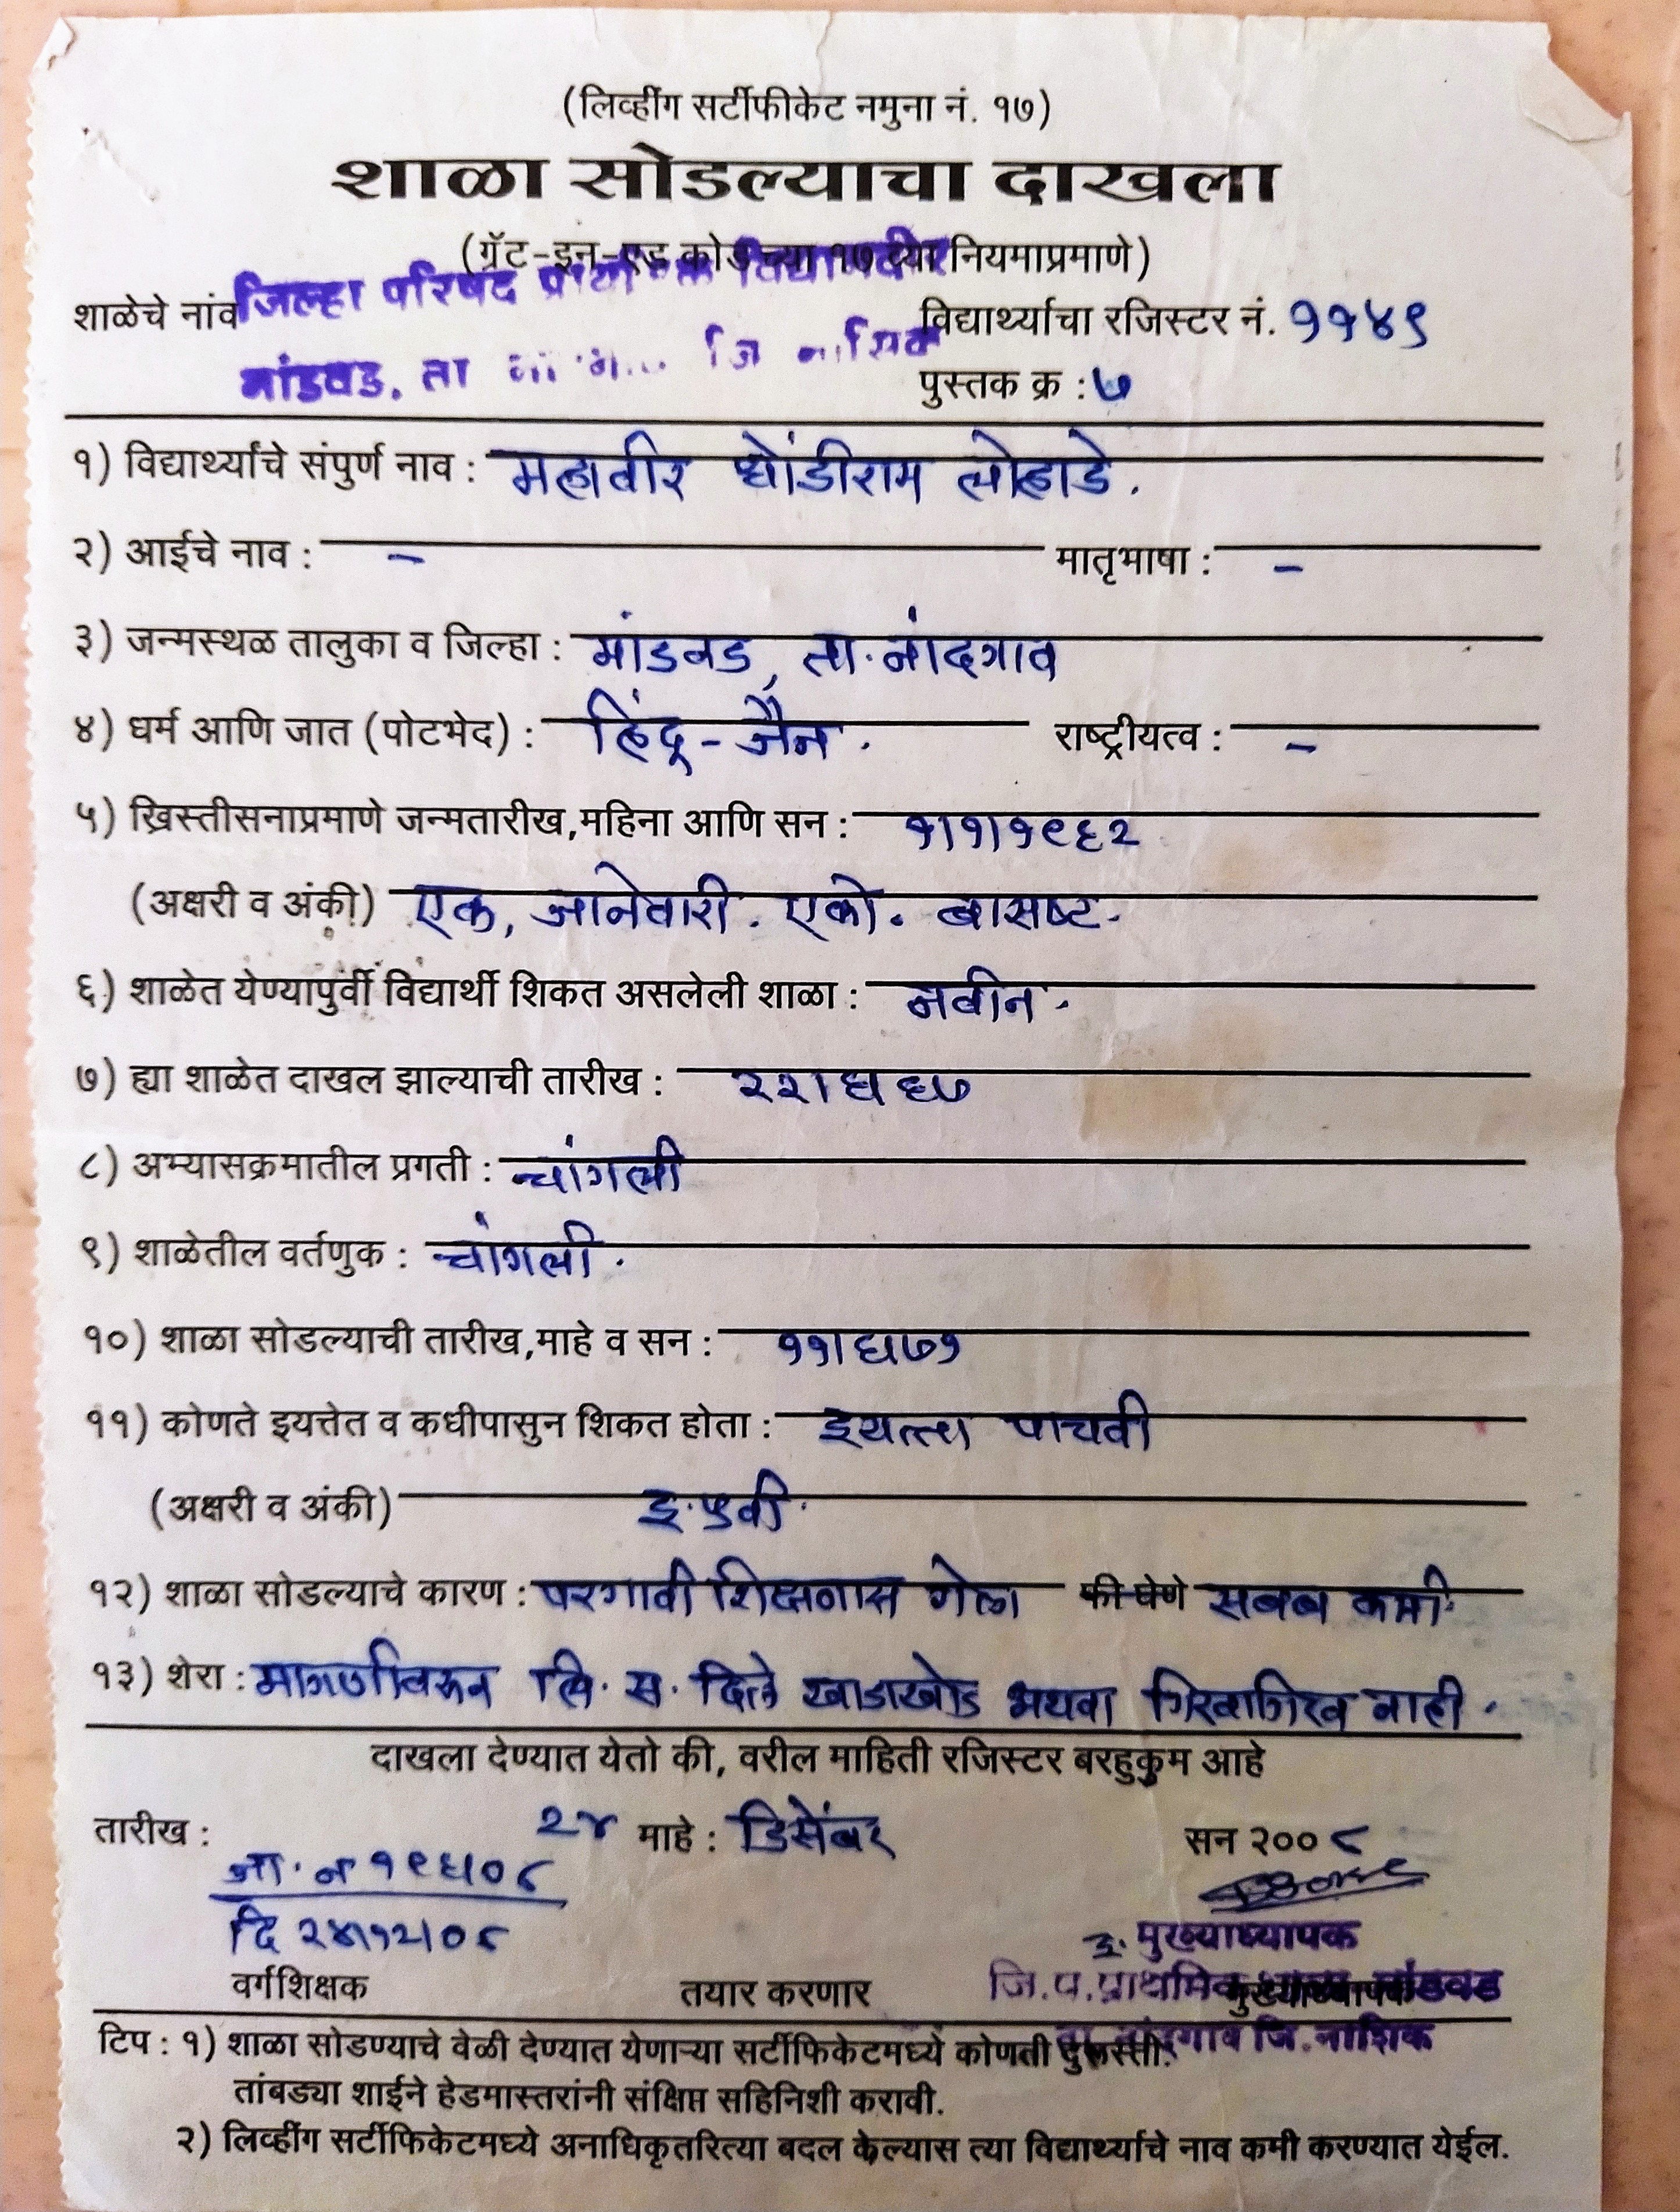 (लिव्हींग सर्टीफीकेट नमुना नं. १७)
शाळा सोडल्याचा दाखला
(ग्रॅट-इन-एड कोडच्या १७ व्या नियमाप्रमाणे)
शाळेचे नांव जिल्हा परिषद विद्यार्थ्याचा रजिस्टर नं. ११४९
मांडवड, ता जि पुस्तक क्र : ७
१) विद्यार्थ्यांचे संपुर्ण नाव : महावीर धोंडीराम लोहाडे.
२) आईचे नाव : - मातृभाषा : -
३) जन्मस्थळ तालुका व जिल्हा : मांडवड, ता.नांदगाव
४) धर्म आणि जात (पोटभेद) : हिंदू - जैन. राष्ट्रीयत्व : -
५) ख्रिस्तीसनाप्रमाणे जन्मतारीख,महिना आणि सन : १।१।१९६२
(अक्षरी व अंकी) एक, जानेवारी. एको. बासष्ट.
६) शाळेत येण्यापुर्वी विद्यार्थी शिकत असलेली शाळा : नवीन.
७) ह्या शाळेत दाखल झाल्याची तारीख :
८) अभ्यासक्रमातील प्रगती : चांगली
९) शाळेतील वर्तणुक : चांगली.
१०) शाळा सोडल्याची तारीख,माहे व सन :
११) कोणते इयत्तेत व कधीपासुन शिकत होता : इयत्ता पाचवी
(अक्षरी व अंकी) इ. ५वी.
१२) शाळा सोडल्याचे कारण : परगावी शिक्षणास गेला फी घेणे सबब कमी.
१३) शेरा : मागणीवरून लि. स. दिले खाडाखोड अथवा गिरवागिरव नाही.
दाखला देण्यात येतो की, वरील माहिती रजिस्टर बरहुकुम आहे
तारीख : २४ माहे : डिसेंबर सन २००८
जा. न
दि २४।१२।०८
इ. मुख्याध्यापक
वर्गशिक्षक तयार करणार जि.प.प्राथमिक शाळा मांडवड मुख्याध्यापक
ता. नांदगाव जि. नाशिक
टिप : १) शाळा सोडण्याचे वेळी देण्यात येणाऱ्या सर्टीफिकेटमध्ये कोणती दुरूस्ती.
तांबड्या शाईने हेडमास्तरांनी संक्षिप्त सहिनिशी करावी.
२) लिव्हींग सर्टीफिकेटमध्ये अनाधिकृतरित्या बदल केल्यास त्या विद्यार्थ्याचे नाव कमी करण्यात येईल.